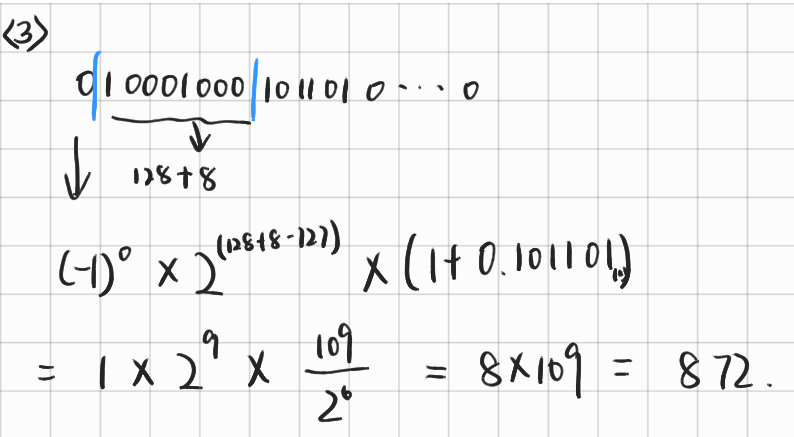 <3>
0|10001000|1011010...0
128+8
(-1)^0 × 2^(128+8-127) × (1+0.101101)
= 1 × 2^9 × 109/2^6 = 8×109 = 872.